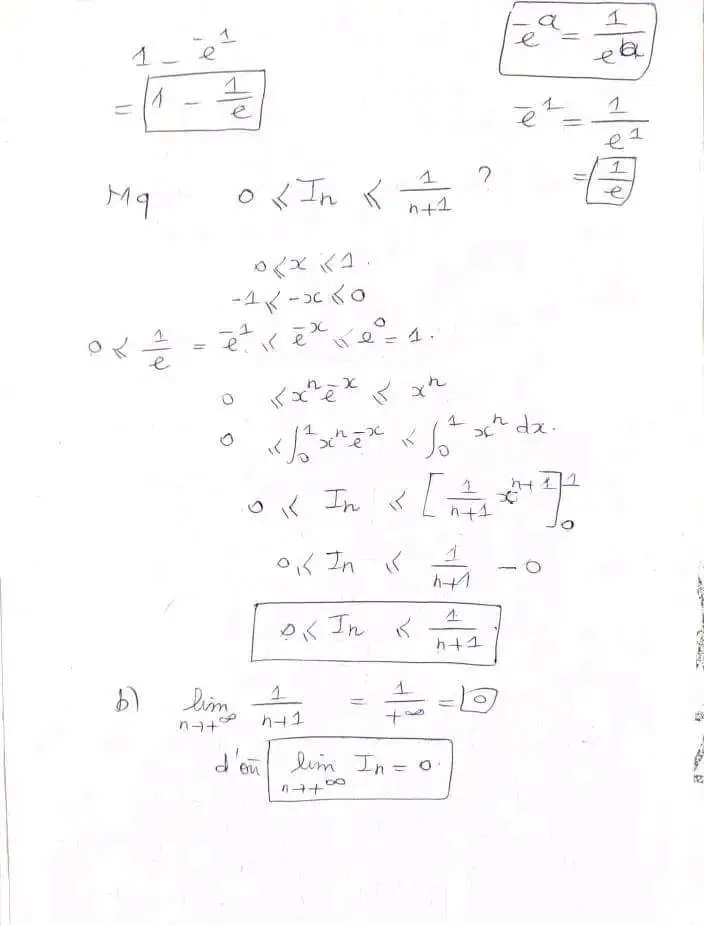 1 - e^-1
= 1 - 1/e
e^-a = 1/e^a
e^-1 = 1/e^1
= 1/e
Mq 0 ⩽ In ⩽ 1/(n+1) ?
0 ⩽ x ⩽ 1.
-1 ⩽ -x ⩽ 0
0 ⩽ 1/e = e^-1 ⩽ e^-x ⩽ e^0 = 1.
0 ⩽ x^n e^-x ⩽ x^n
0 ⩽ ∫_0^1 x^n e^-x ⩽ ∫_0^1 x^n dx.
0 ⩽ In ⩽ [1/(n+1) x^(n+1)]_0^1
0 ⩽ In ⩽ 1/(n+1) - 0
0 ⩽ In ⩽ 1/(n+1)
b) lim n→+∞ 1/(n+1) = 1/+∞ = 0
d'où lim n→+∞ In = 0.